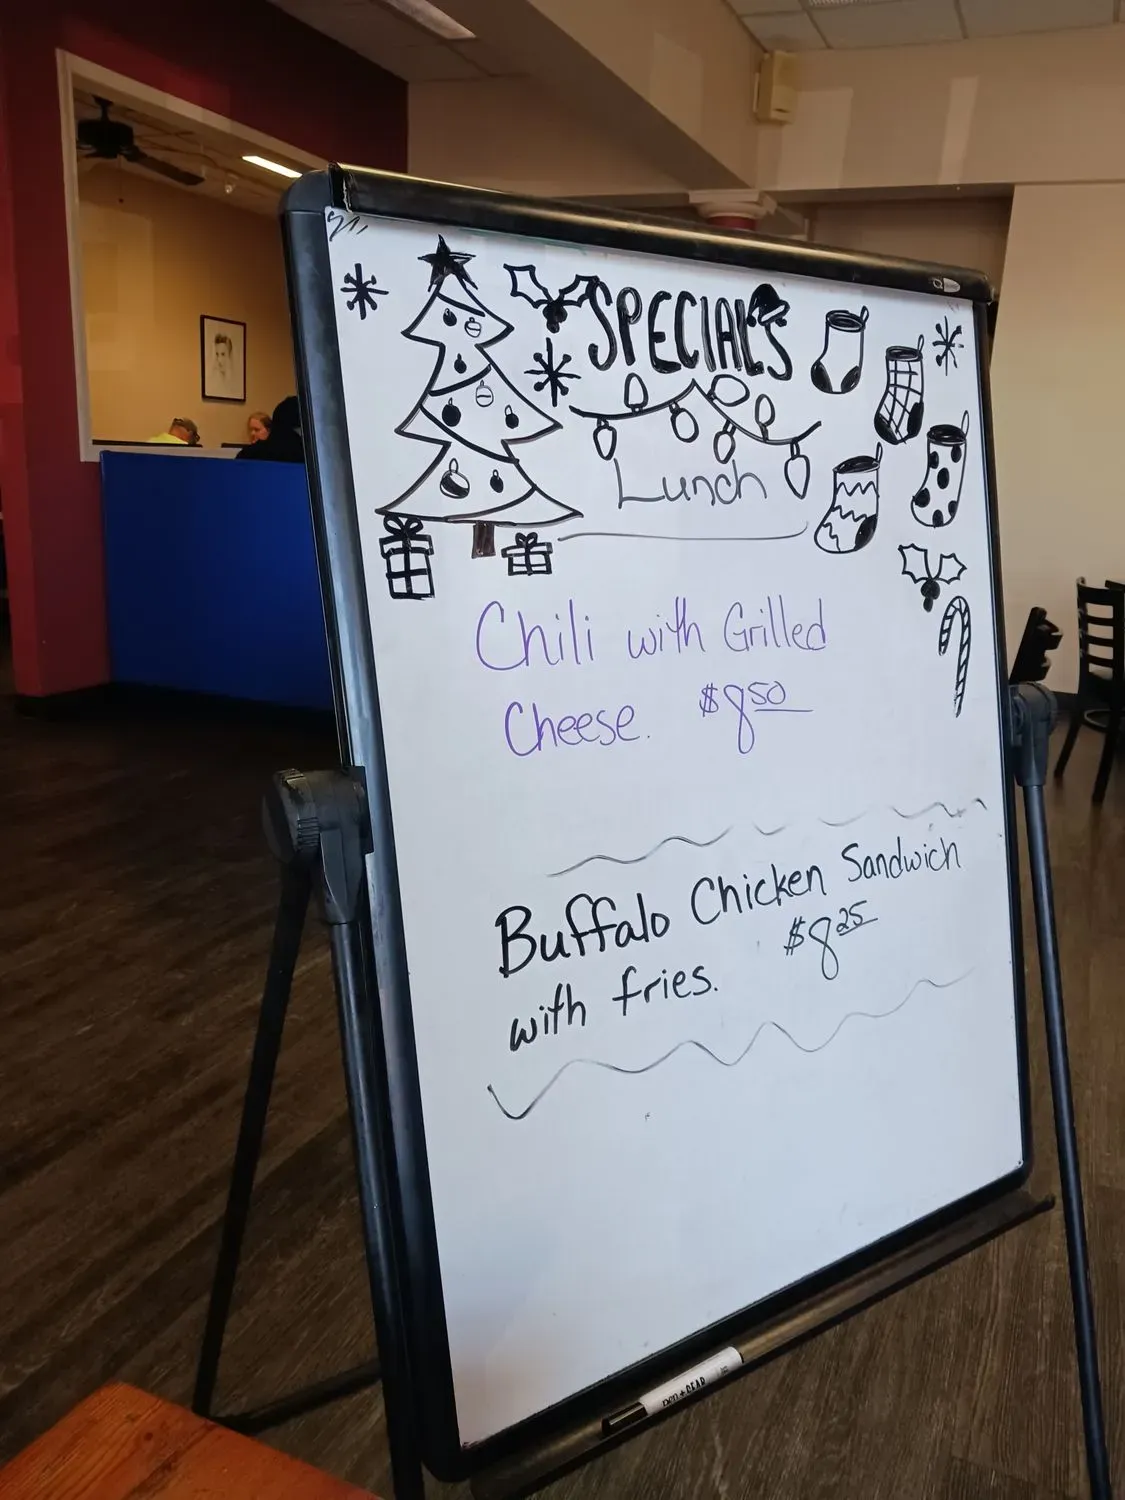 SPECIALS
Lunch
Chili with Grilled
Cheese. $8.50
Buffalo Chicken Sandwich
with fries. $8.25
pen+GEAR